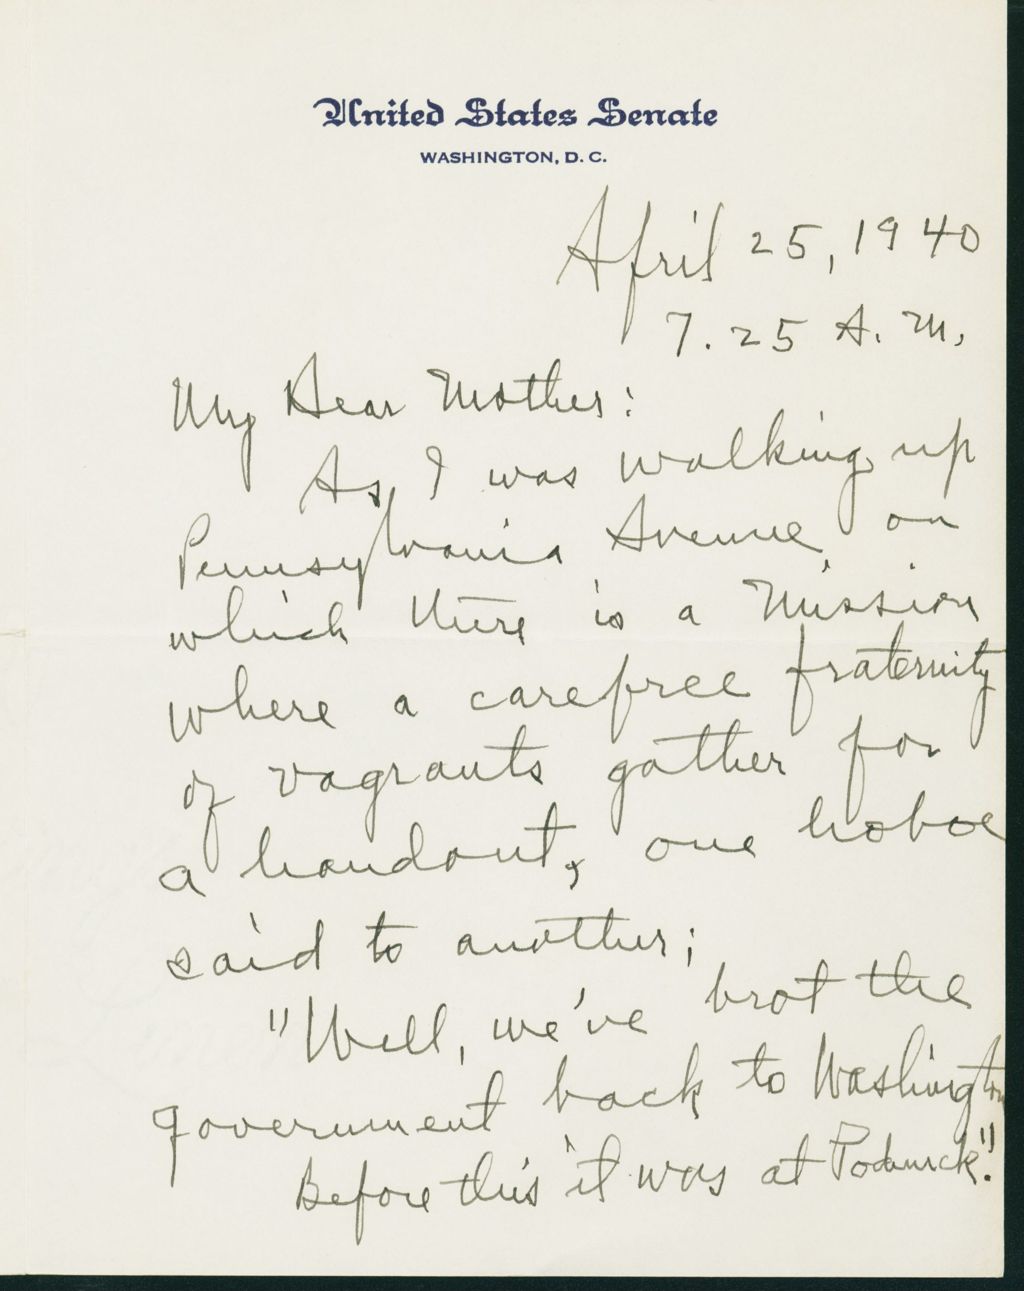 United States Senate
WASHINGTON, D. C.
April 25, 1940
7.25 A. M.
My Dear Mother:
As I was walking up
Pennsylvania Avenue on
which there is a Mission
where a carefree fraternity
of vagrants gather for
a handout, one hoboe
said to another;
"Well, we've brot the
government back to Washington
Before this it was at Podunck."